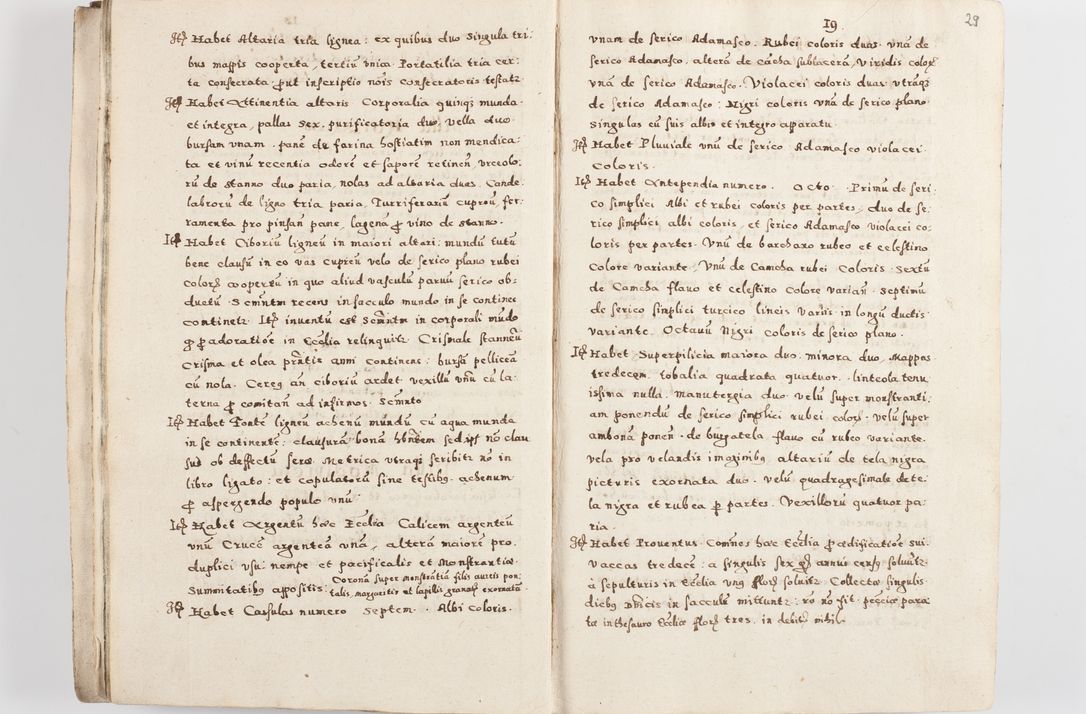 Itē Habet Altaria tria lignea: ex quibus duo singula tri:
bus mappis cooperta, tertiū vnica. Portatilia tria cer:
ta consecrata, ꝓut inscriptio nōis consecratoris testatr
Itē Habet Attinentia altaris Corporalia quinqȝ munda
et integra, pallas sex, purificatoria duo, vella duo
bursam vnam. panē de farina hostiatim non mendica:
ta et vinū recentia odorē et saporē retinen̄, vrceolo:
rū de stanno duo paria, nolas ad altaria duas. Cande
labrorū de ligno tria paria, Turriferarū cupreū, fer:
ramenta pro pinsan̄ pane, lagenā ꝓ vino de stanno.
Itē Habet Ciboriū ligneū in maiori altari: mundū tutū
bene clausū in eo vas cupreū velo de serico plano rubei
coloris coopertū in quo aliud vasculū paruū serico ob:
ductū. Scm̄ntm recens in sacculo mundo in se continee
continetr. Itē inuentū est Scm̄ntm in corporali mūdo
ꝙ ꝓ adoratiōe in Ecclīa relinquitr Crismale stanneū
Crisma et olea pr̄ntis anni continens: bursā pelliceā
cū nola. Cereȝ an̄ ciboriū ardet vexillū vnū cū la:
terna ꝓ comitan̄ ad infirmos. Scm̄nto
Itē Habet Fontē ligneū achenū mūndū cū aqua munda
in se continentē: clausurā bonā hbn̄tem sed ips̄ nō clau
sus ob deffectū serae. Metrica vtraqȝ scribitr nō in
libro ligato: et copulatorū sine testibȝ. achenum
ꝓ aspergendo populo vnū.
Itē Habet Argentū haec Ecclīa Calicem argenteū
vnū Crucē argenteā vnā, alterā maiorē pro
duplici vsu: nempe et pacificalis et Monstrantiae
summitatibȝ appositis: Corona super monstrātiā filis aureis pon:
talis, margaritis et lapillis granatis exornata.
Itē Habet Casulas numero septem. Albi coloris.
19.
29
vnam de serico Adamasco. Rubei coloris duas vnā de
serico Adamasco, alterā de cācha sublacerā, Viridis coloris
vnā de serico Adamasco. Violacei coloris duas vtrāqȝ
de serico Adamasco: Nigri coloris vnā de serico plano
singulas cū suis albis et integro apparatu.
Itē Habet Pluuiale vnū de serico Adamasco violacei
Coloris.
Itē Habet Antependia numero. octo. Primū de seri
co simplici Albi et rubei coloris per partes, duo de se:
rico simplici albi coloris, et serico Adamasco violacei co:
loris per partes. Vnū de barchano rubeo et celestino
Colore variante, Vnū de Camcha rubei Coloris. sextū
de Camcha flauo et celestino colore varian̄. Septimū
de serico simplici turcico lineis variis in longū ductis
variante. Octauū Nigri coloris de serico plano.
Itē Habet Superpilicia maiora duo: minora duo, Mappas
tredecem. tobalia quadrata quatuor. linteola tenu
issima nulla. manutergia duo. velū super monstranti:
am ponendū de serico simplici rubei coloris. velū super
ambonā ponen̄. de burgatela flauo cū rubeo variante.
vela pro velandis imaginibȝ altariū de tela nigra
picturis exornata duo. velū quadragesimale de te:
la nigra et rubea ꝑ partes. Vexillorū quatuor pa:
ria.
Itē Habet Prouentus. Comn̄es haec Ecclīa ꝓ aedificatiōe sui.
Vaccas tredecē: a singulis sex gȓ annui censȝ soluūtr
à sepulturis in Ecclīa vnȝ flor̄ soluitr Collectae singulis
diebȝ Dn̄icis in sacculū mittuntr: rō nō fit. pecūia para
ta in thesauro Ecclīae flor̄ tres. in debitis nihil.